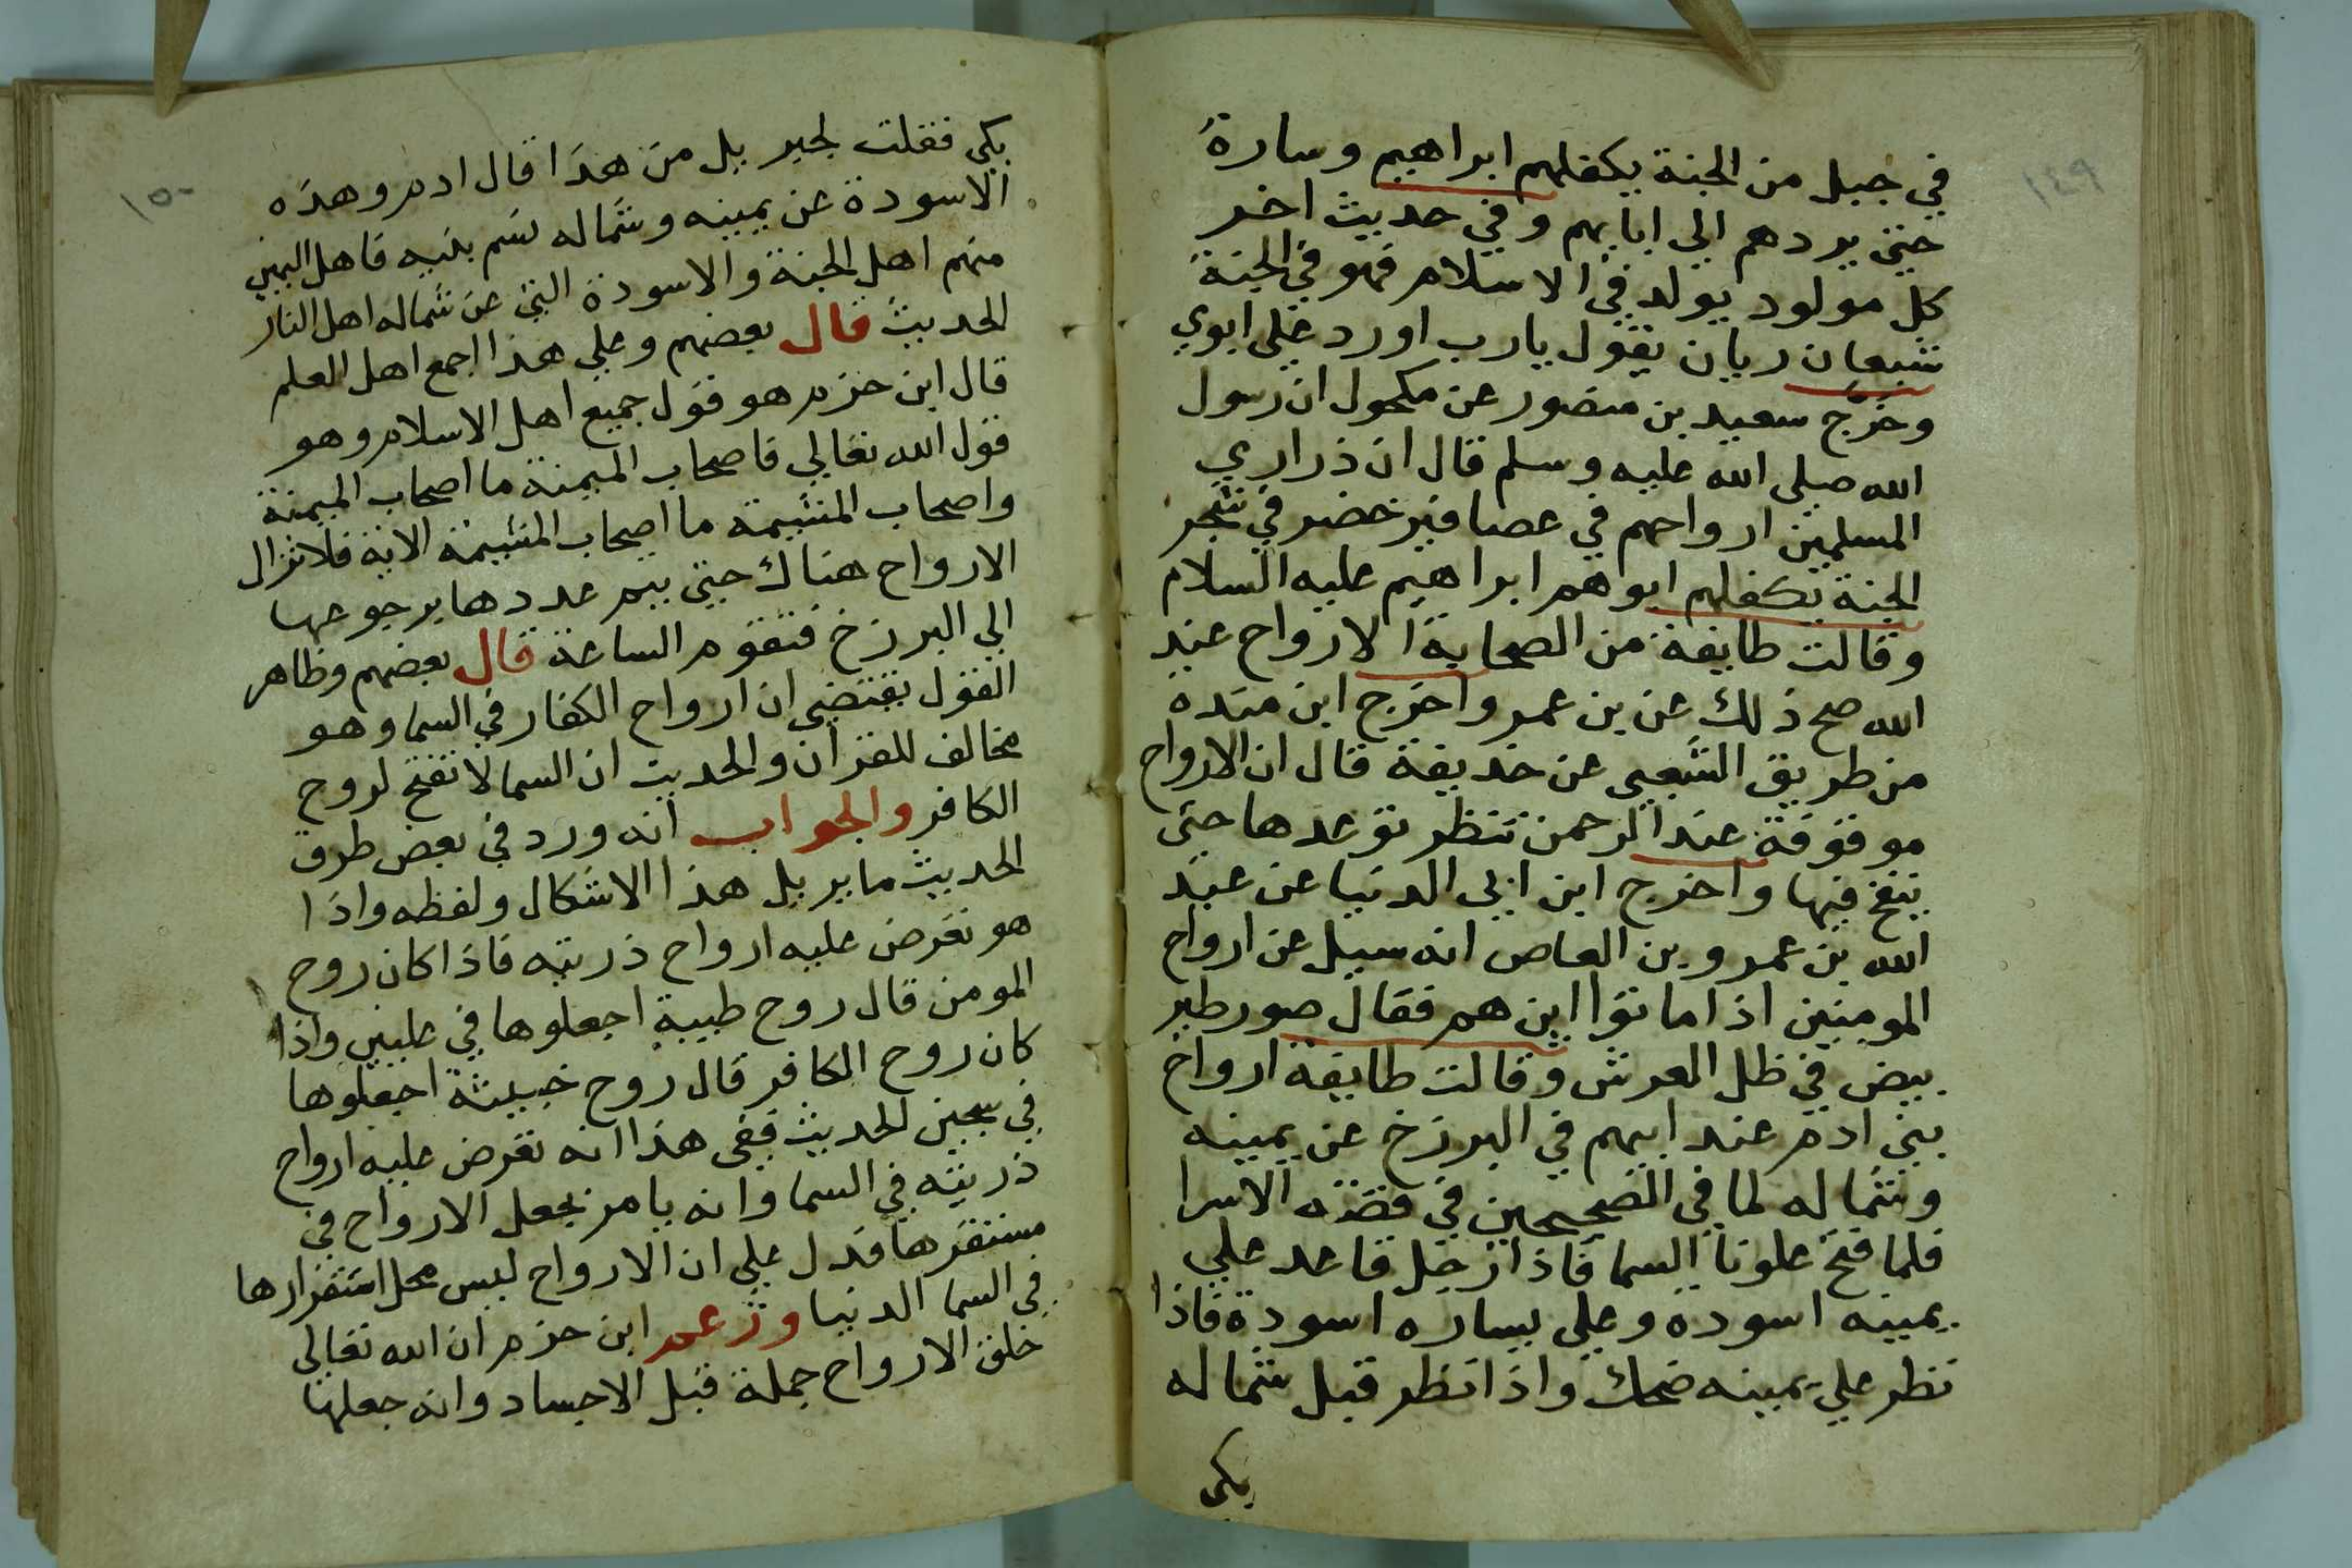 ١٤٩
في جبل من الجنة يكفلهم ابراهيم وسارة
حتى يردهم الى ابايهم وفي حديث اخر
كل مولود يولد في الاسلام فهو في الجنة
شبعان ريان يقول يارب اورد علي ابوي
وخرّج سعيد بن منصور عن مكحول ان رسول
الله صلى الله عليه وسلم قال ان ذراري
المسلمين ارواحهم في عصافير خضر في شجر
الجنة يكفلهم ابوهم ابراهيم عليه السلام
وقالت طايفة من الصحابة الارواح عند
الله صح ذلك عن بن عمر واخرج ابن منده
من طريق الشعبي عن حذيفة قال ان الارواح
موقوفة عند الرحمن تنتظر توعدها حتى
ينفخ فيها واخرج ابن ابي الدنيا عن عبد
الله بن عمرو بن العاص انه سيل عن ارواح
المومنين اذا ماتوا اين هم فقال صور طير
بيض في ظل العرش وقالت طايفة ارواح
بني ادم عند ابيهم في البرزخ عن يمينه
وشماله لما في الصحيحين في قصة الاسرا
فلما فتح علونا السما فاذا رجل قاعد علي
يمينه اسودة وعلي يساره اسودة فاذا
نظر علي يمينه ضحك واذا نظر قبل شماله
بكي
١٥٠
بكي فقلت لجبريل من هذا قال ادم وهذه
الاسودة عن يمينه وشماله نسم بنيه فاهل اليمين
منهم اهل الجنة والاسودة التي عن شماله اهل النار
الحديث قال بعضهم وعلي هذا اجمع اهل العلم
قال ابن حزم هو قول جميع اهل الاسلام وهو
قول الله تعالي فاصحاب الميمنة ما اصحاب الميمنة
واصحاب المشيمة ما اصحاب المشيمة الاية فلا تزال
الارواح هناك حتى يتم عددها برجوعها
الي البرزخ فتقوم الساعة قال بعضهم وظاهر
القول يقتضي ان ارواح الكفار في السما وهو
مخالف للقران والحديث ان السما لا تفتح لروح
الكافر والجواب انه ورد في بعض طرق
الحديث ما يريل هذا الاشكال ولفظه واذا
هو تعرض عليه ارواح ذريته فاذا كان روح
المومن قال روح طيبة اجعلوها في عليين واذا
كان روح الكافر قال روح خبيثة اجعلوها
في سجين الحديث ففي هذا انه تعرض عليه ارواح
ذريته في السما وانه يامر بجعل الارواح في
مستقرها فدل علي ان الارواح ليس محل استقرارها
في السما الدنيا وزعم ابن حزم ان الله تعالي
خلق الارواح جملة قبل الاجساد وانه جعلها